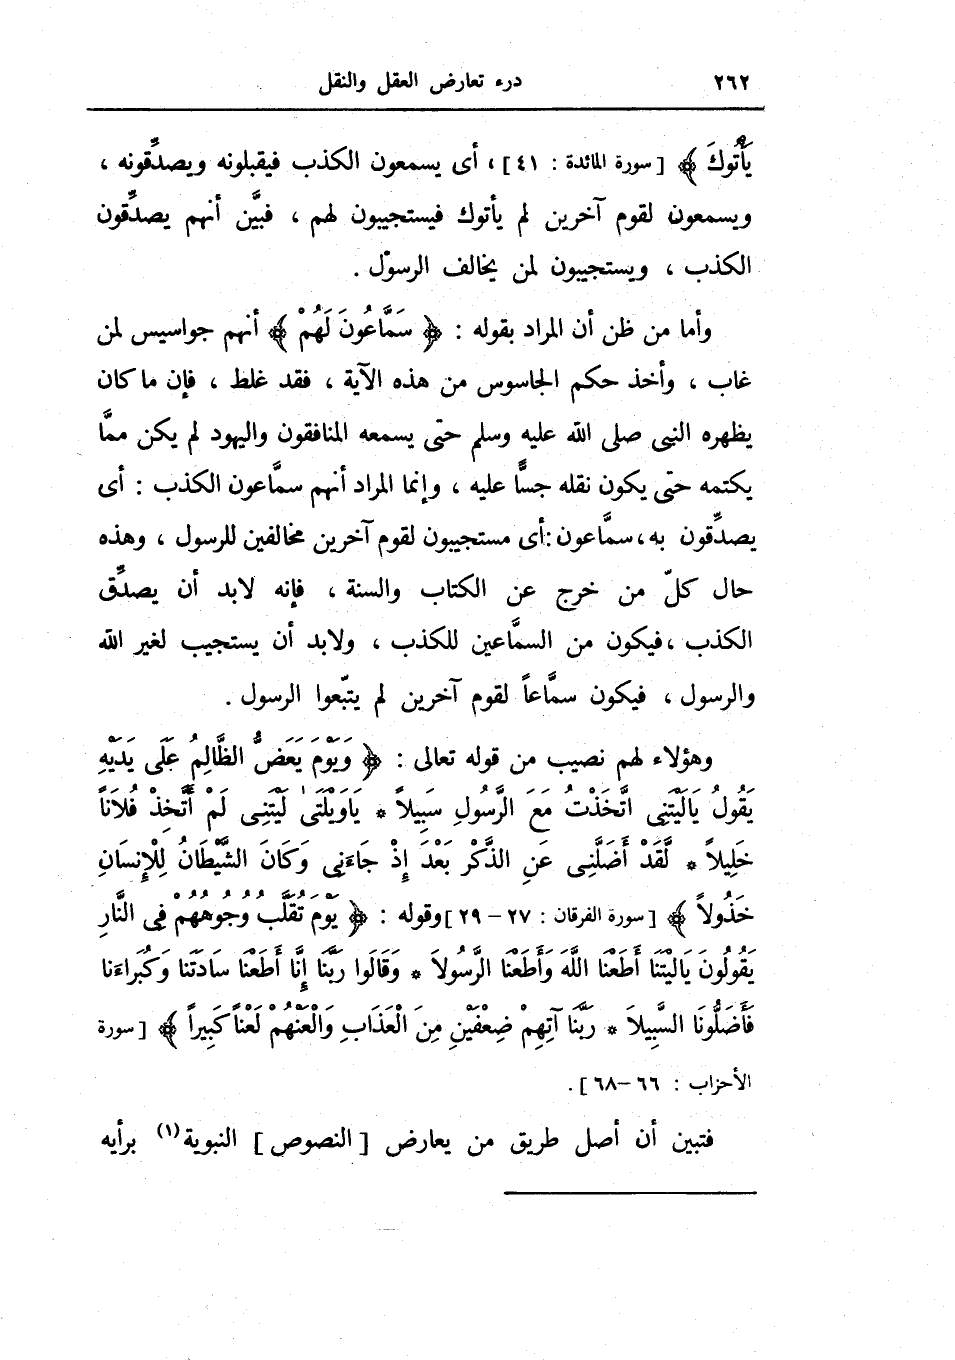 ٢٦٢ درء تعارض العقل والنقل
يَأْتُوكَ ﴾ [ سورة المائدة : ٤١ ] ، أى يسمعون الكذب فيقبلونه ويصدِّقونه ،
ويسمعون لقوم آخرين لم يأتوك فيستجيبون لهم ، فبيَّن أنهم يصدِّقون
الكذب ، ويستجيبون لمن يخالف الرسول .
وأما من ظن أن المراد بقوله : ﴿ سَمَّاعُونَ لَهُمْ ﴾ أنهم جواسيس لمن
غاب ، وأخذ حكم الجاسوس من هذه الآية ، فقد غلط ، فإن ما كان
يظهره النبى صلى الله عليه وسلم حتى يسمعه المنافقون واليهود لم يكن ممَّا
يكتمه حتى يكون نقله جسًّا عليه ، وإنما المراد أنهم سمَّاعون الكذب : أى
يصدِّقون به ، سمَّاعون : أى مستجيبون لقوم آخرين مخالفين للرسول ، وهذه
حال كلّ من خرج عن الكتاب والسنة ، فإنه لابد أن يصدِّق
الكذب ، فيكون من السمَّاعين للكذب ، ولابد أن يستجيب لغير الله
والرسول ، فيكون سمَّاعاً لقوم آخرين لم يتّبعوا الرسول .
وهؤلاء لهم نصيب من قوله تعالى : ﴿ وَيَوْمَ يَعَضُّ الظَّالِمُ عَلَى يَدَيْهِ
يَقُولُ يَالَيْتَنِى اتَّخَذْتُ مَعَ الرَّسُولِ سَبِيلاً * يَاوَيْلَتَىٰ لَيْتَنِى لَمْ أَتَّخِذْ فُلاَناً
خَلِيلاً * لَّقَدْ أَضَلَّنِى عَنِ الذِّكْرِ بَعْدَ إِذْ جَاءَنِى وَكَانَ الشَّيْطَانُ لِلْإِنسَانِ
خَذُولاً ﴾ [ سورة الفرقان : ٢٧ – ٢٩ ] وقوله : ﴿ يَوْمَ تُقَلَّبُ وُجُوهُهُمْ فِى النَّارِ
يَقُولُونَ يَالَيْتَنَا أَطَعْنَا اللَّهَ وَأَطَعْنَا الرَّسُولاَ * وَقَالُوا رَبَّنَا إِنَّا أَطَعْنَا سَادَتَنَا وَكُبَرَاءَنَا
فَأَضَلُّونَا السَّبِيلاَ * رَبَّنَا آتِهِمْ ضِعْفَيْنِ مِنَ الْعَذَابِ وَالْعَنْهُمْ لَعْناً كَبِيراً ﴾ [ سورة
الأحزاب : ٦٦ – ٦٨ ] .
فتبين أن أصل طريق من يعارض [ النصوص ] النبوية (١) برأيه